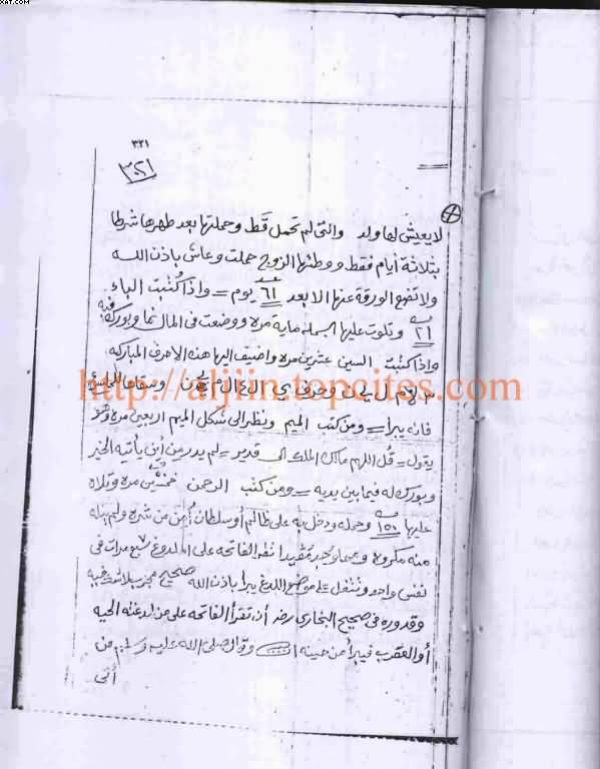 XAT.COM
٣٢١
٣٢١
لا يعيش لها ولد والتى لم تحمل قط وحملتها بعد طهرها شرطا
بثلاثة أيام فقط ووطئها الزوج حملت وعاش باذن الله
ولا تنفع الورقة عنها الا بعد ٦١ يوم = واذا كتبت الباء
٢١ وتلوت عليها البسملة ماية مره ووضعت فى المال نما وبورك فيه
واذا كتبت السين عشرين مره واضيف اليها هذه الاحرف المباركه
http://aljiin.topcites.com
فانه يبرأ = ومن كتب الميم ونظر الى شكل الميم اربعين مره وهو
يقول = قل اللهم مالك الملك الى قدير = لم يدر من أين يأتيه الخير
وبورك له فيما بين يديه = ومن كتب الرحمن خمسين مره وتلاه
عليها ١٥٠ وحمله ودخل به على ظالم أو سلطان أمن من شره ولم ينله
منه مكروه تقرأ الفاتحه على الملدوغ سبع مرات فى
نفس واحد وتتفل على موضع اللدغ يبرأ باذن الله صحيح مجرب لا شك فيه
وقد ورد فى صحيح البخارى رضه أن تقرأ الفاتحه على من لدغته الحيه
أو العقرب فيبرأ من حينه وقال صلى الله عليه وسلم من
أتى